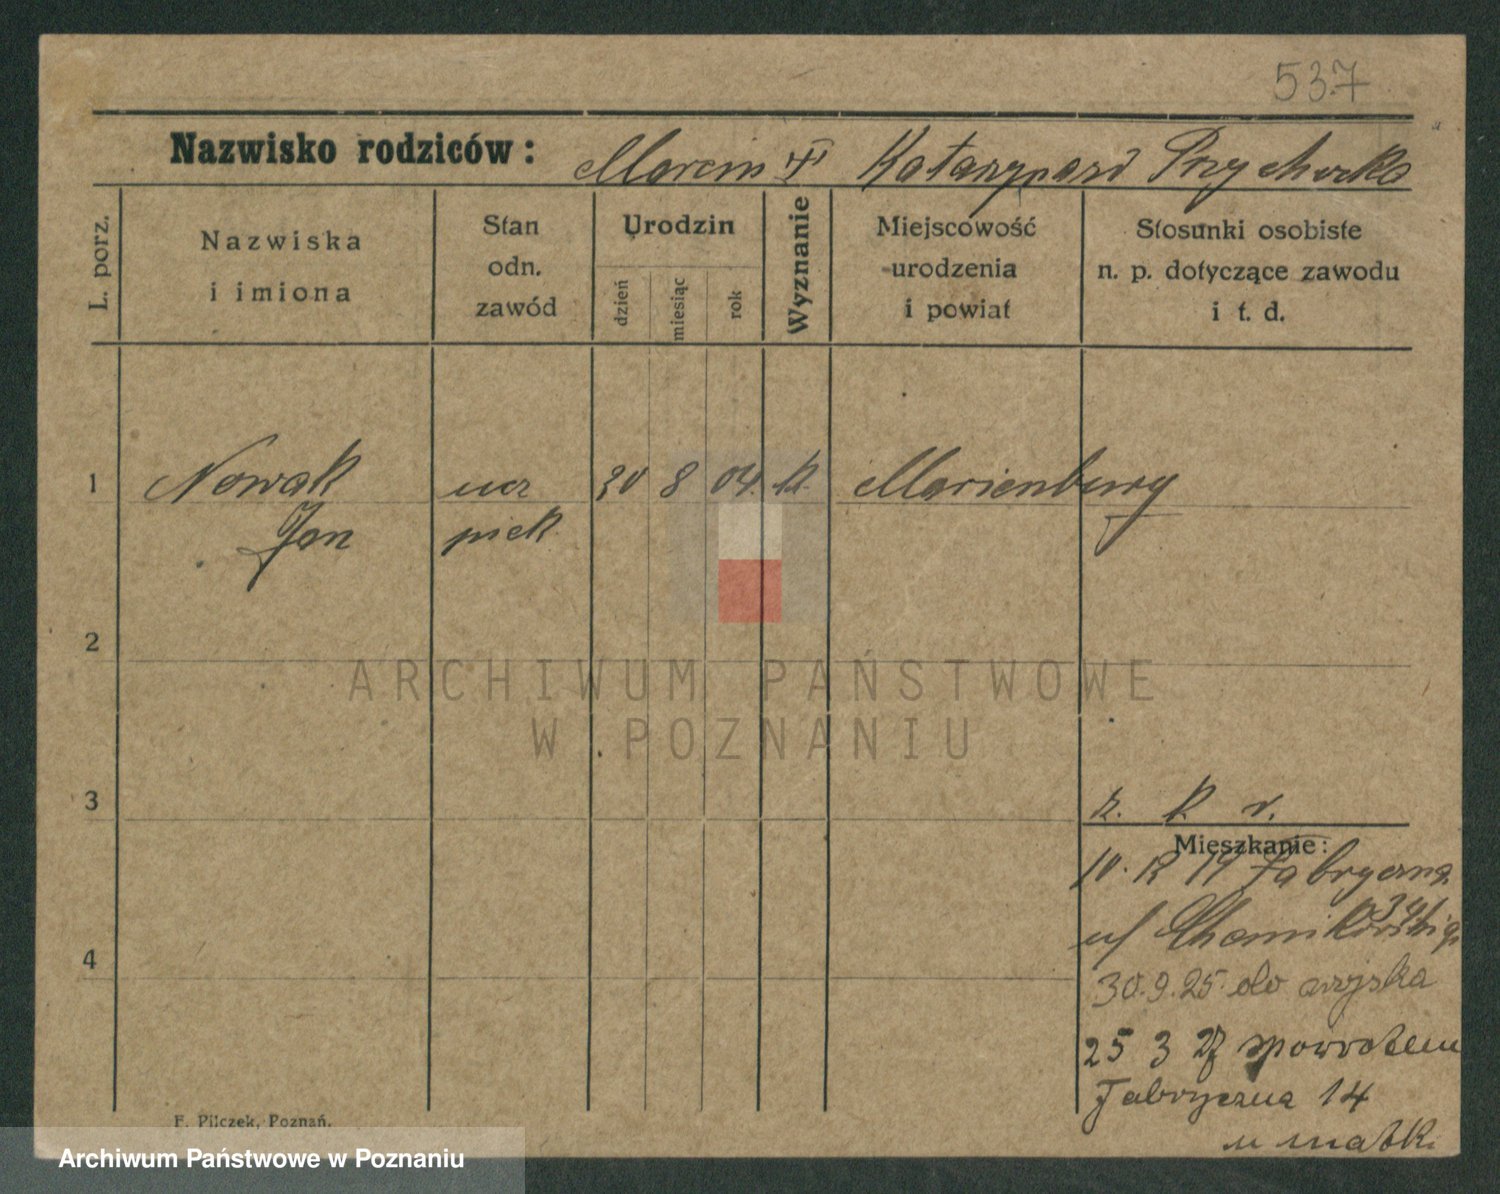 537
Nazwisko rodziców: Marcin Katarzyna Przychocka
L. porz.
Nazwiska
i imiona
Stan
odn.
zawód
Urodzin
dzień
miesiąc
rok
Wyznanie
Miejscowość
urodzenia
i powiat
Stosunki osobiste
n. p. dotyczące zawodu
i t. d.
1 Nowak ucz 30 8 04. k. Marienburg
Jan piek
2
ARCHIWUM PAŃSTWOWE
W POZNANIU
3
k. v.
Mieszkanie:
19 Fabryczna
34
u/
4
30.9.25 do wojska
25 3 27 spowrotem
Fabryczna 14
u matki
F. Pilczek, Poznań.
Archiwum Państwowe w Poznaniu